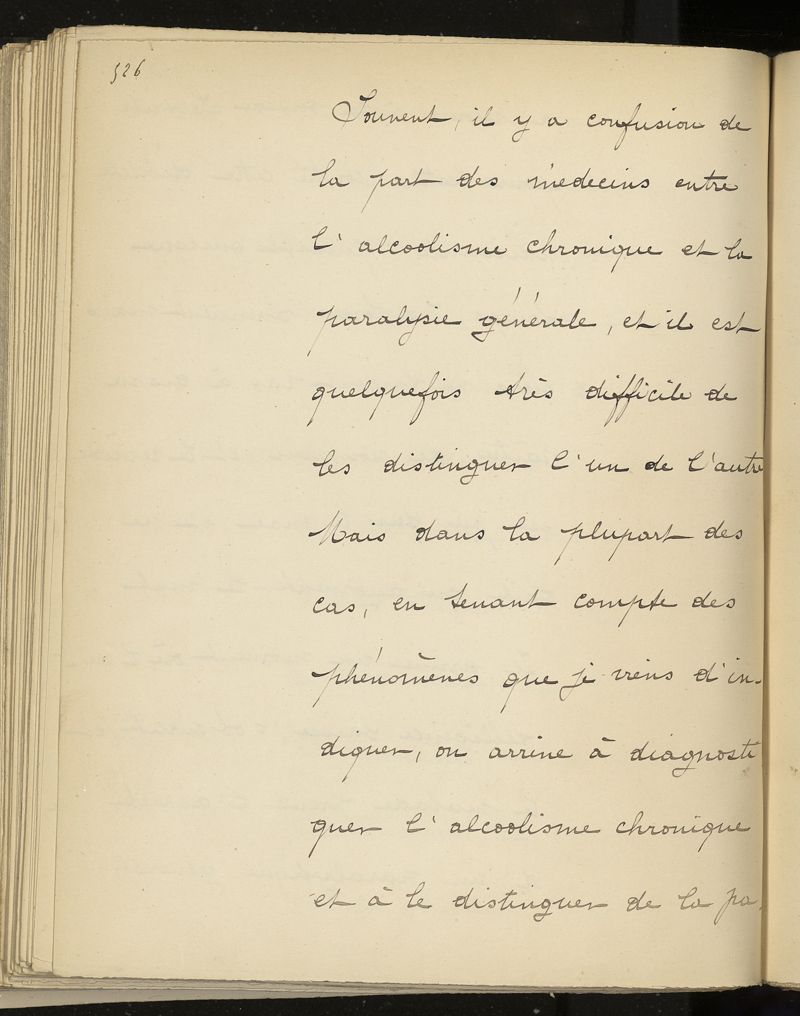 526
Souvent, il y a confusion de
la part des médecins entre
l'alcoolisme chronique et la
paralysie générale, et il est
quelquefois très difficile de
les distinguer l'un de l'autre
Mais dans la plupart des
cas, en tenant compte des
phénomènes que je viens d'in-
diquer, on arrive à diagnosti
quer l'alcoolisme chronique
et à le distinguer de la pa-